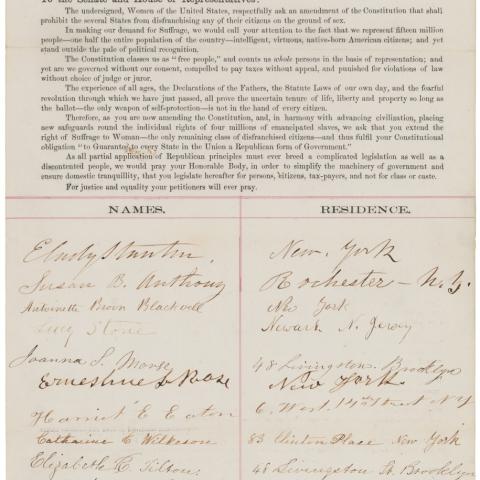 To the Senate and House of Representatives:
The undersigned, Women of the United States, respectfully ask an amendment of the Constitution that shall
prohibit the several States from disfranchising any of their citizens on the ground of sex.
In making our demand for Suffrage, we would call your attention to the fact that we represent fifteen million
people—one half the entire population of the country—intelligent, virtuous, native-born American citizens; and yet
stand outside the pale of political recognition.
The Constitution classes us as "free people," and counts us whole persons in the basis of representation; and
yet are we governed without our consent, compelled to pay taxes without appeal, and punished for violations of law
without choice of judge or juror.
The experience of all ages, the Declarations of the Fathers, the Statute Laws of our own day, and the fearful
revolution through which we have just passed, all prove the uncertain tenure of life, liberty and property so long as
the ballot—the only weapon of self-protection—is not in the hand of every citizen.
Therefore, as you are now amending the Constitution, and, in harmony with advancing civilization, placing
new safeguards round the individual rights of four millions of emancipated slaves, we ask that you extend the
right of Suffrage to Woman—the only remaining class of disfranchised citizens—and thus fulfil your Constitutional
obligation "to Guarantee to every State in the Union a Republican form of Government."
As all partial application of Republican principles must ever breed a complicated legislation as well as a
discontented people, we would pray your Honorable Body, in order to simplify the machinery of government and
ensure domestic tranquillity, that you legislate hereafter for persons, citizens, tax-payers, and not for class or caste.
For justice and equality your petitioners will ever pray.
NAMES. RESIDENCE.
E Cady Stanton, New York
Susan B. Anthony Rochester - N.Y.
Antoinette Brown Blackwell New York
Lucy Stone Newark N. Jersey
Joanna S. Morse 48 Livingston. Brooklyn
Ernestine L Rose New York
Harriet E. Eaton 6. West. 14th Street N.Y
Catharine C Wilkeson 83 Clinton Place New York
Elizabeth R. Tilton. 48 Livingston St. Brooklyn